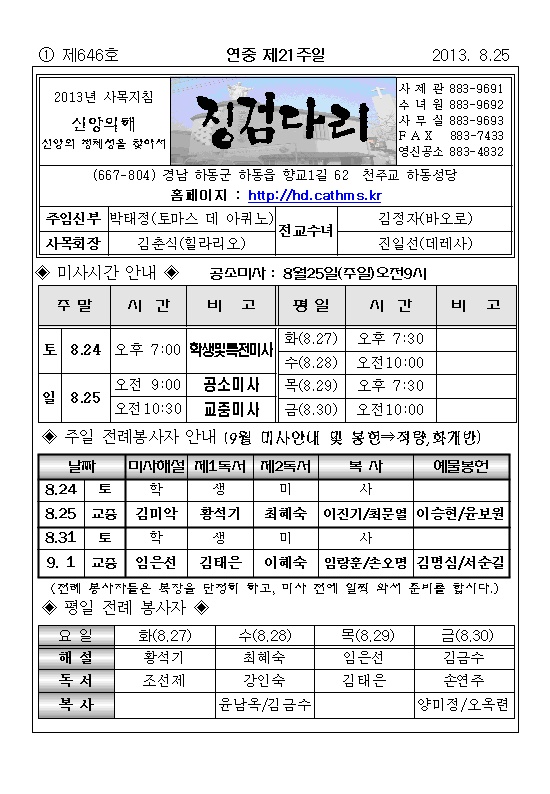 ① 제646호 연중 제21주일 2013. 8.25
2013년 사목지침
신앙의해
신앙의 정체성을 찾아서
징검다리
사 제 관 883-9691
수 녀 원 883-9692
사 무 실 883-9693
F A X 883-7433
영신공소 883-4832
(667-804) 경남 하동군 하동읍 향교1길 62 천주교 하동성당
홈페이지 : http://hd.cathms.kr
주임신부 박태정(토마스 데 아퀴노) 전교수녀 김정자(바오로)
사목회장 김춘식(힐라리오) 진일선(데레사)
◈ 미사시간 안내 ◈ 공소미사 : 8월25일(주일)오전9시
주 말 시 간 비 고 평 일 시 간 비 고
토 8.24 오후 7:00 학생및특전미사 화(8.27) 오후 7:30
수(8.28) 오전10:00
일 8.25 오전 9:00 공소미사 목(8.29) 오후 7:30
오전10:30 교중미사 금(8.30) 오전10:00
◈ 주일 전례봉사자 안내 (9월 미사안내 및 봉헌⇒적량,화개반)
날짜 미사해설 제1독서 제2독서 복 사 예물봉헌
8.24 토 학 생 미 사
8.25 교중 김미악 황석기 최혜숙 이진기/최문열 이승현/윤보원
8.31 토 학 생 미 사
9. 1 교중 임은선 김태은 이혜숙 임랑훈/손오명 김명심/서순길
(전례 봉사자들은 복장을 단정히 하고, 미사 전에 일찍 와서 준비를 합시다.)
◈ 평일 전례 봉사자 ◈
요 일 화(8.27) 수(8.28) 목(8.29) 금(8.30)
해 설 황석기 최혜숙 임은선 김금수
독 서 조선제 강인숙 김태은 손연주
복 사 윤남옥/김금수 양미정/오옥련